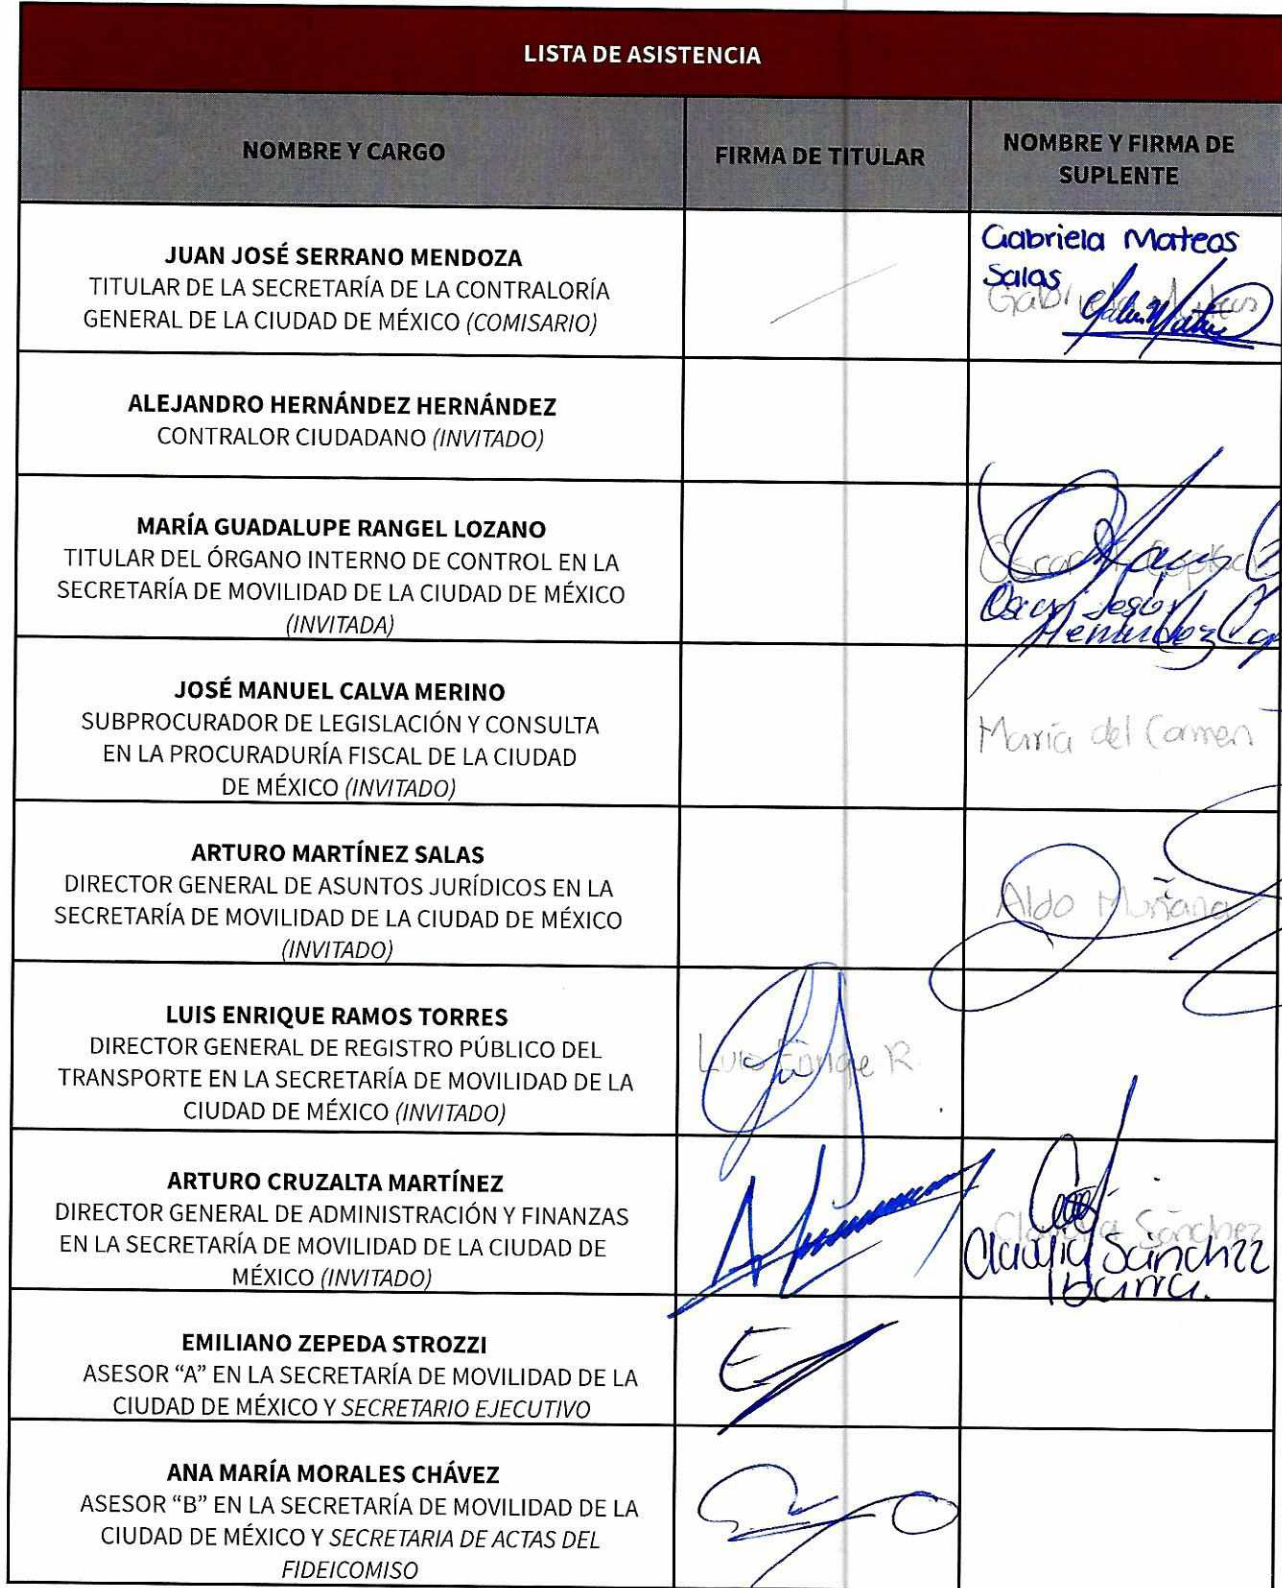 LISTA DE ASISTENCIA
NOMBRE Y CARGO
FIRMA DE TITULAR
NOMBRE Y FIRMA DE
SUPLENTE
JUAN JOSÉ SERRANO MENDOZA
TITULAR DE LA SECRETARÍA DE LA CONTRALORÍA
GENERAL DE LA CIUDAD DE MÉXICO (COMISARIO)
Gabriela Mateos
Salas
Gabriela Mateos
ALEJANDRO HERNÁNDEZ HERNÁNDEZ
CONTRALOR CIUDADANO (INVITADO)
MARÍA GUADALUPE RANGEL LOZANO
TITULAR DEL ÓRGANO INTERNO DE CONTROL EN LA
SECRETARÍA DE MOVILIDAD DE LA CIUDAD DE MÉXICO
(INVITADA)
Oscar
Oscar Jesús
Hernández
JOSÉ MANUEL CALVA MERINO
SUBPROCURADOR DE LEGISLACIÓN Y CONSULTA
EN LA PROCURADURÍA FISCAL DE LA CIUDAD
DE MÉXICO (INVITADO)
María del Carmen
ARTURO MARTÍNEZ SALAS
DIRECTOR GENERAL DE ASUNTOS JURÍDICOS EN LA
SECRETARÍA DE MOVILIDAD DE LA CIUDAD DE MÉXICO
(INVITADO)
Aldo Muñana
LUIS ENRIQUE RAMOS TORRES
DIRECTOR GENERAL DE REGISTRO PÚBLICO DEL
TRANSPORTE EN LA SECRETARÍA DE MOVILIDAD DE LA
CIUDAD DE MÉXICO (INVITADO)
Luis Enrique R.
ARTURO CRUZALTA MARTÍNEZ
DIRECTOR GENERAL DE ADMINISTRACIÓN Y FINANZAS
EN LA SECRETARÍA DE MOVILIDAD DE LA CIUDAD DE
MÉXICO (INVITADO)
Claudia Sánchez
Claudia Sánchez
Ibarra.
EMILIANO ZEPEDA STROZZI
ASESOR “A” EN LA SECRETARÍA DE MOVILIDAD DE LA
CIUDAD DE MÉXICO Y SECRETARIO EJECUTIVO
ANA MARÍA MORALES CHÁVEZ
ASESOR “B” EN LA SECRETARÍA DE MOVILIDAD DE LA
CIUDAD DE MÉXICO Y SECRETARIA DE ACTAS DEL
FIDEICOMISO